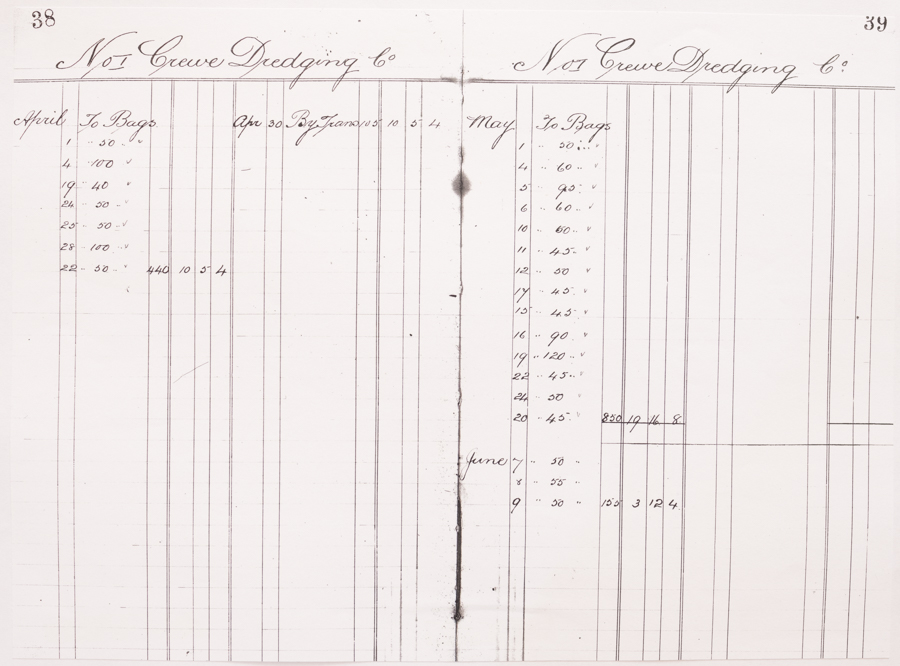 38
No 1 Crewe Dredging Co
April To Bags Apr 30 By Trans 105 10 5 4
1 " 50 " "
4 " 100 "
19 " 40 "
24 " 50 " "
25 " 50 " "
28 " 100 " "
22 " 50 " " 440 10 5 4
39
No 1 Crewe Dredging Co:
May To Bags
1 " 50 " "
4 " 60 " "
5 " 95 " "
6 " 60 " "
10 " 60 " "
11 " 45 " "
12 " 50 "
17 " 45 "
15 " 45 "
16 " 90 "
19 " 120 " "
22 " 45 " "
24 " 50 "
20 " 45 " 850 19 16 8
June 7 " 50 "
8 " 55 "
9 " 50 " 155 3 12 4